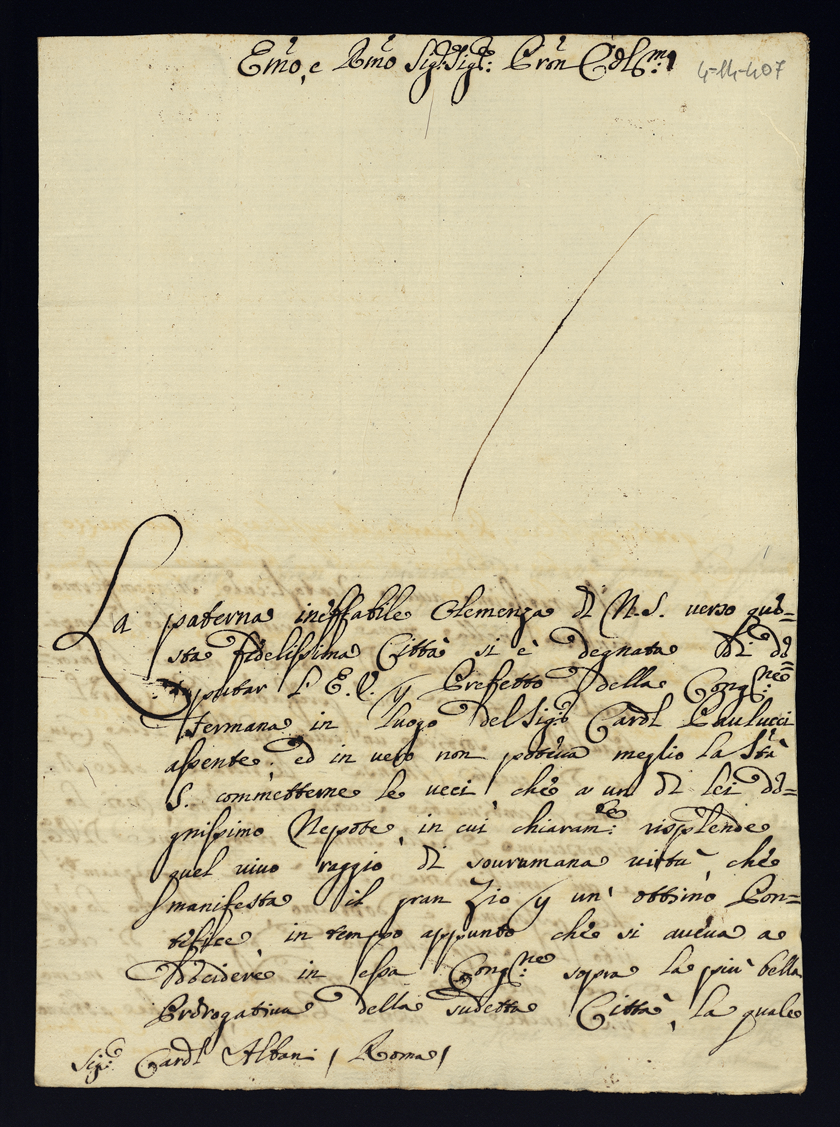 Emo, e Rmo Sig.r Sig.r Pron Col.mo
4-14-407
La paterna ineffabile Clemenza di N.S. verso que=
sta fidelissima Città si è degnata di de=
putar l'E.V. p Prefetto della Cong.ne
Fermana in luogo del Sig.r Cardl Paulucci
assente: ed in vero non poteva meglio la Stà
S. commetterne le veci che a un di lei de=
gnissimo Nepote, in cui chiaram.te risplende
quel vivo raggio di sourumana virtù che
manifesta il gran Zio p un' ottimo Pon=
tefice, in tempo appunto che si aueua a
decidere in essa Cong.ne sopra la più bella
Prerogatiua della sudetta Città, la quale
Sig.r Cardl Albani / Roma /